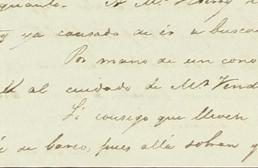 quanto. A Mr.
y ya cansado de ir a buscar
Por mano de un cono
al cuidado de Mr. Vend
Si consigo que lleven
de barco, pues allá sobran y